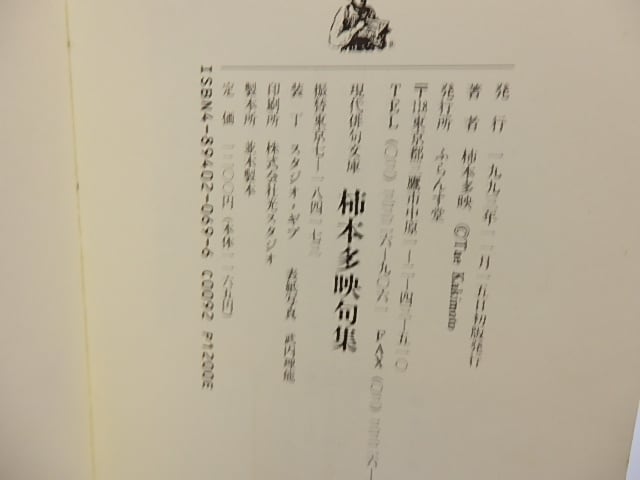 発行 一九九三年
初版発行
著者 柿本多映 ©Tae Kakimoto
発行所 ふらんす堂
東京都三鷹市中原
TEL
FAX
現代俳句文庫 柿本多映句集
振替東京七—一八四一七三
装丁 スタジオ・ギブ 表紙写真 武内理能
印刷所 株式会社光スタジオ
製本所 並木製本
定価 一二〇〇円(本体一一六五円)
ISBN4-89402-069-6 C0092 P1200E